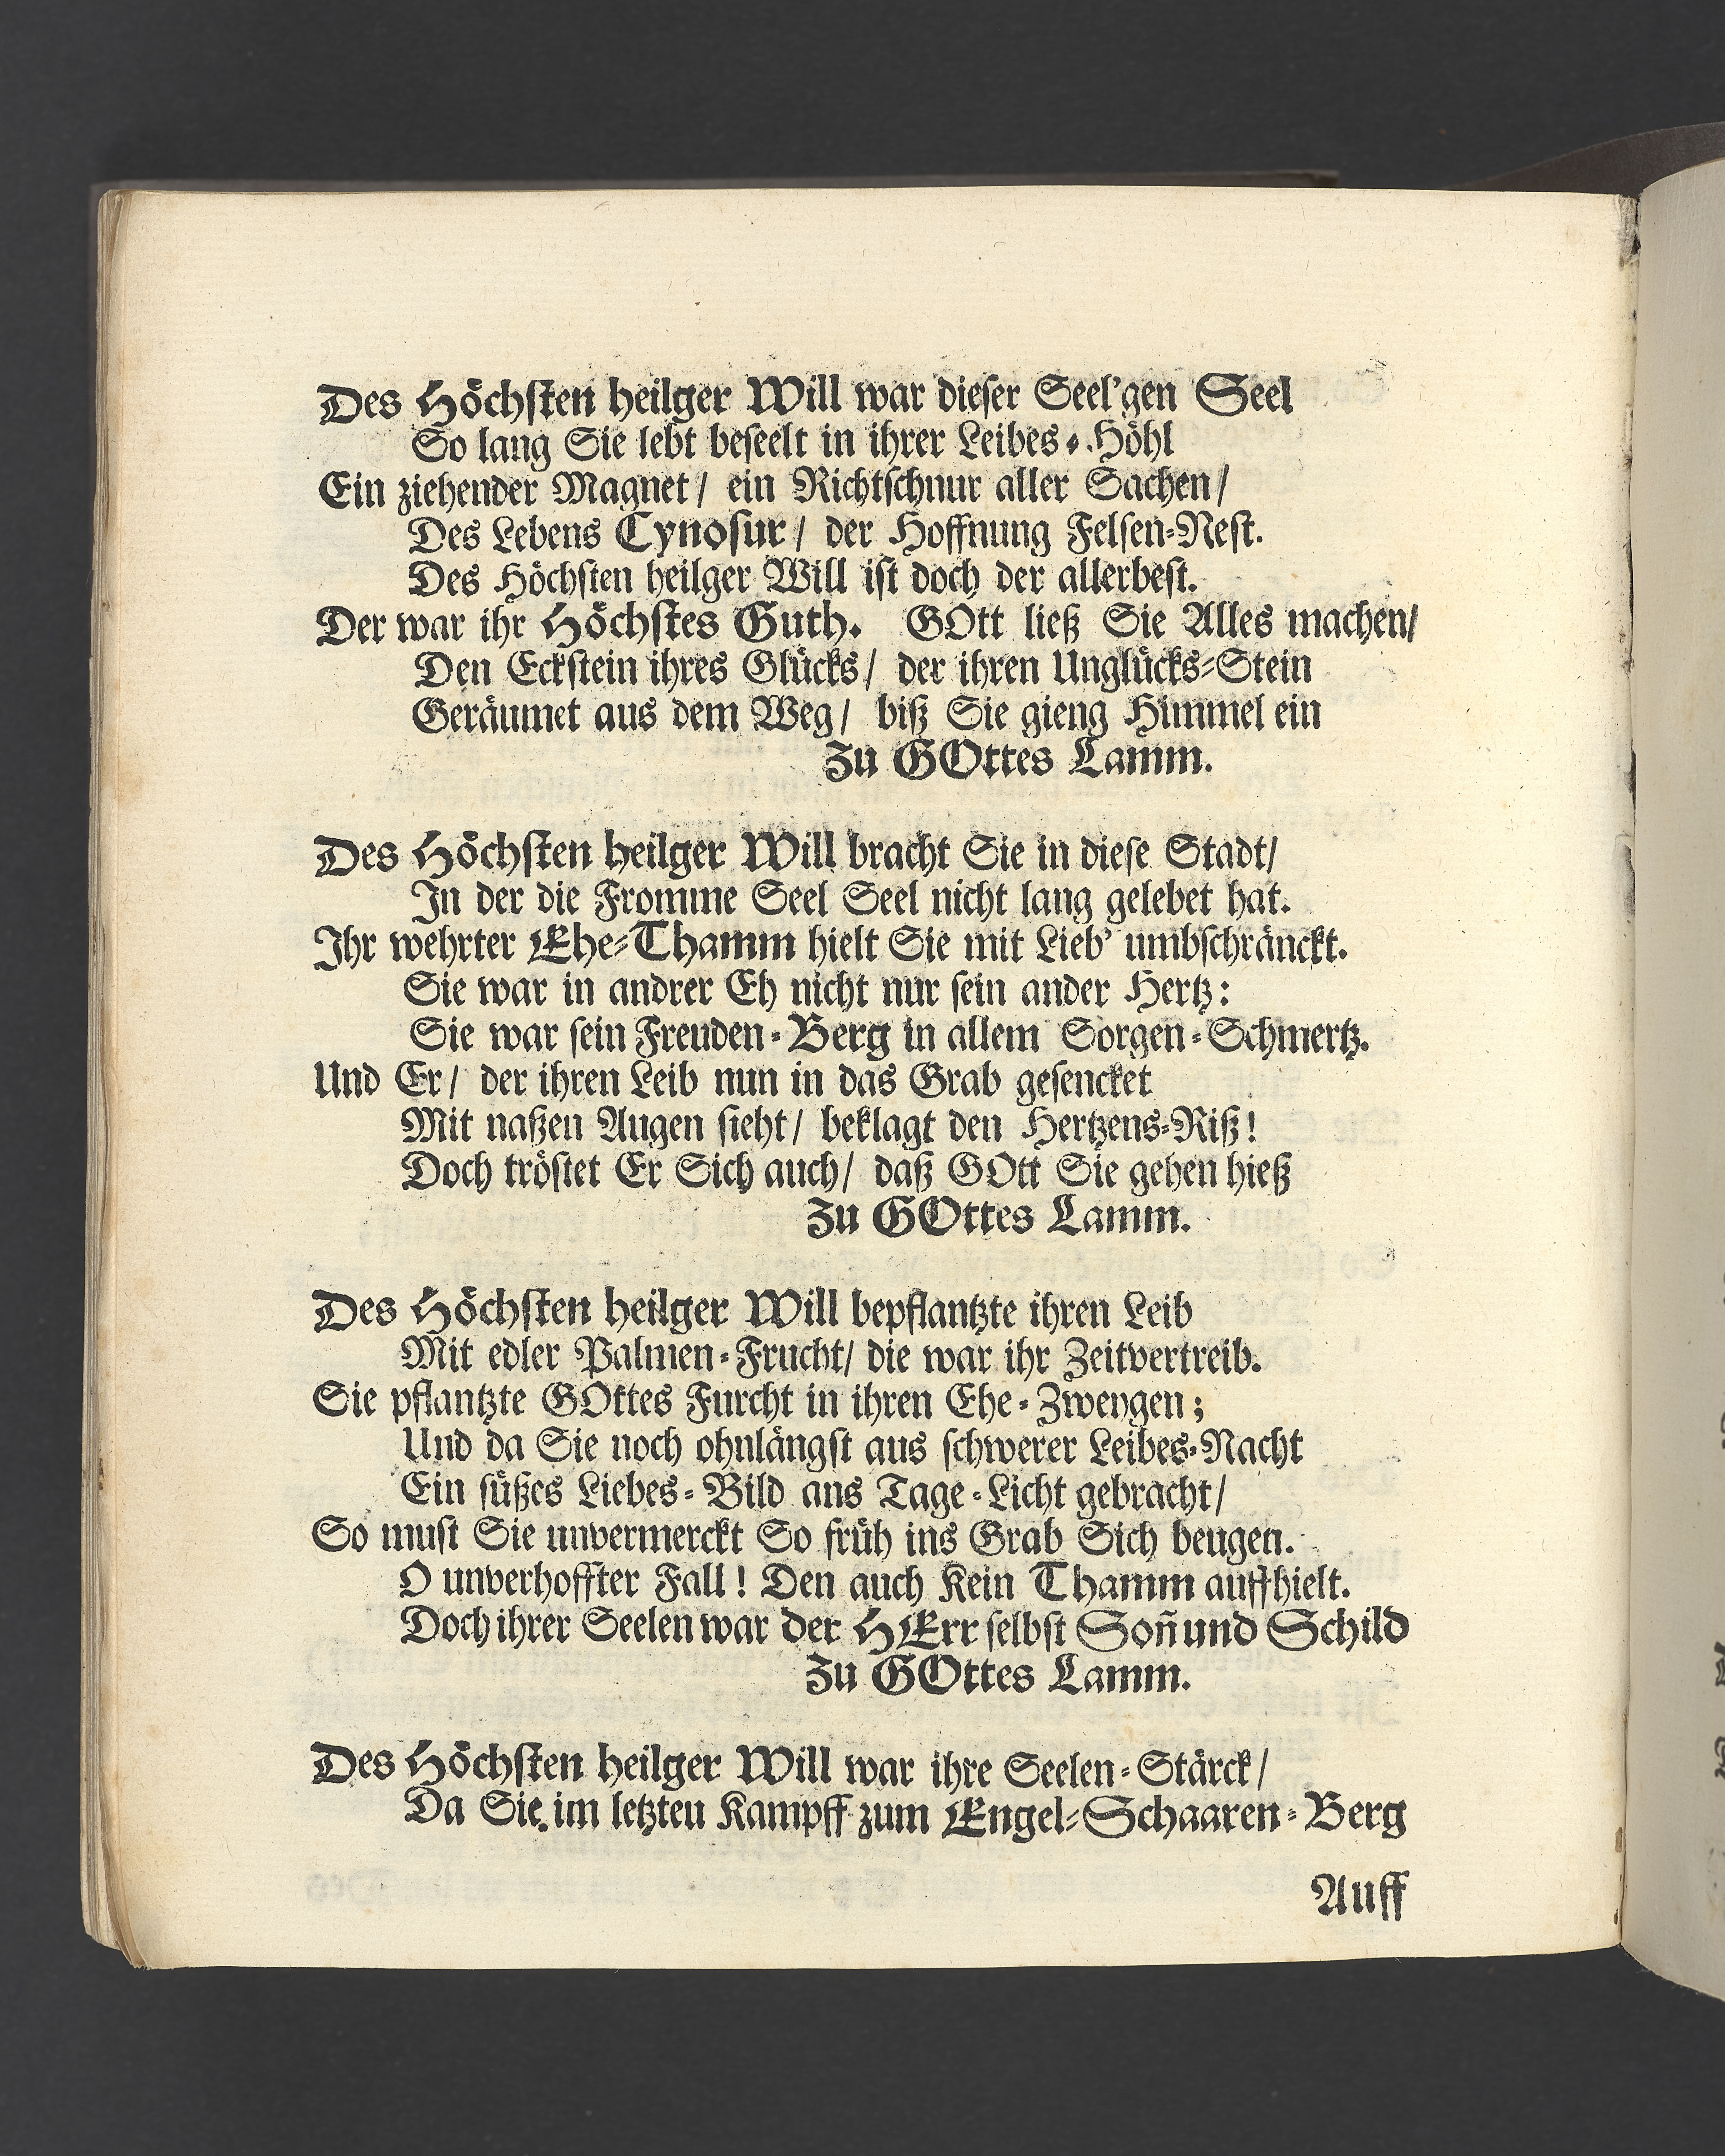 Des Höchsten heilger Will war dieser Seel'gen Seel
So lang Sie lebt beseelt in ihrer Leibes-Höhl
Ein ziehender Magnet/ ein Richtschnur aller Sachen/
Des Lebens Cynosur/ der Hoffnung Felsen-Nest.
Des Höchsten heilger Will ist doch der allerbest.
Der war ihr Höchstes Guth. GOtt ließ Sie Alles machen/
Den Eckstein ihres Glücks/ der ihren Unglücks-Stein
Geräumet aus dem Weg/ biß Sie gieng Himmel ein
Zu GOttes Lamm.
Des Höchsten heilger Will bracht Sie in diese Stadt/
In der die Fromme Seel Seel nicht lang gelebet hat.
Ihr wehrter Ehe-Thamm hielt Sie mit Lieb' umbschränckt.
Sie war in andrer Eh nicht nur sein ander Hertz:
Sie war sein Freuden-Berg in allem Sorgen-Schmertz.
Und Er/ der ihren Leib nun in das Grab gesencket
Mit naßen Augen sieht/ beklagt den Hertzens-Riß!
Doch tröstet Er Sich auch/ daß GOtt Sie gehen hieß
Zu GOttes Lamm.
Des Höchsten heilger Will bepflantzte ihren Leib
Mit edler Palmen-Frucht/ die war ihr Zeitvertreib.
Sie pflantzte GOttes Furcht in ihren Ehe-Zweygen;
Und da Sie noch ohnlängst aus schwerer Leibes-Nacht
Ein süßes Liebes-Bild ans Tage-Licht gebracht/
So must Sie unvermerckt So früh ins Grab Sich beugen.
O unverhoffter Fall! Den auch Kein Thamm auffhielt.
Doch ihrer Seelen war der HErr selbst Soñ und Schild
Zu GOttes Lamm.
Des Höchsten heilger Will war ihre Seelen-Stärck/
Da Sie im letzten Kampff zum Engel-Schaaren-Berg
Auff